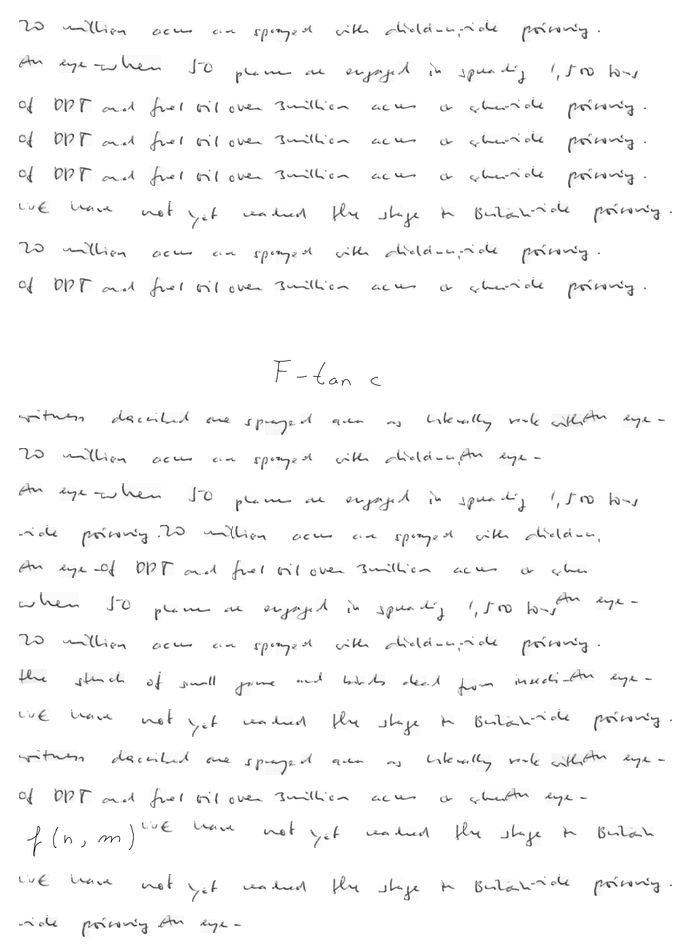 20 million acres are sprayed with dieldrin,-icide poisoning.
An eye-when 50 planes are engaged in spreading 1,500 tons
of DDT and fuel oil over 3 million acres or when-icide poisoning.
of DDT and fuel oil over 3 million acres or when-icide poisoning.
of DDT and fuel oil over 3 million acres or when-icide poisoning.
We have not yet reached the stage in Britain-icide poisoning.
20 million acres are sprayed with dieldrin,-icide poisoning.
of DDT and fuel oil over 3 million acres or when-icide poisoning.
F - tan c
witness described one sprayed area as literally reek withAn eye-
20 million acres are sprayed with dieldrin,An eye-
An eye-when 50 planes are engaged in spreading 1,500 tons
-icide poisoning.20 million acres are sprayed with dieldrin,
An eye-of DDT and fuel oil over 3 million acres or when
when 50 planes are engaged in spreading 1,500 tonsAn eye-
20 million acres are sprayed with dieldrin,-icide poisoning.
the stench of small game and birds dead from insecti-An eye-
We have not yet reached the stage in Britain-icide poisoning.
witness described one sprayed area as literally reek withAn eye-
of DDT and fuel oil over 3 million acres or whenAn eye-
f(n, m)We have not yet reached the stage in Britain
We have not yet reached the stage in Britain-icide poisoning.
-icide poisoning.An eye-